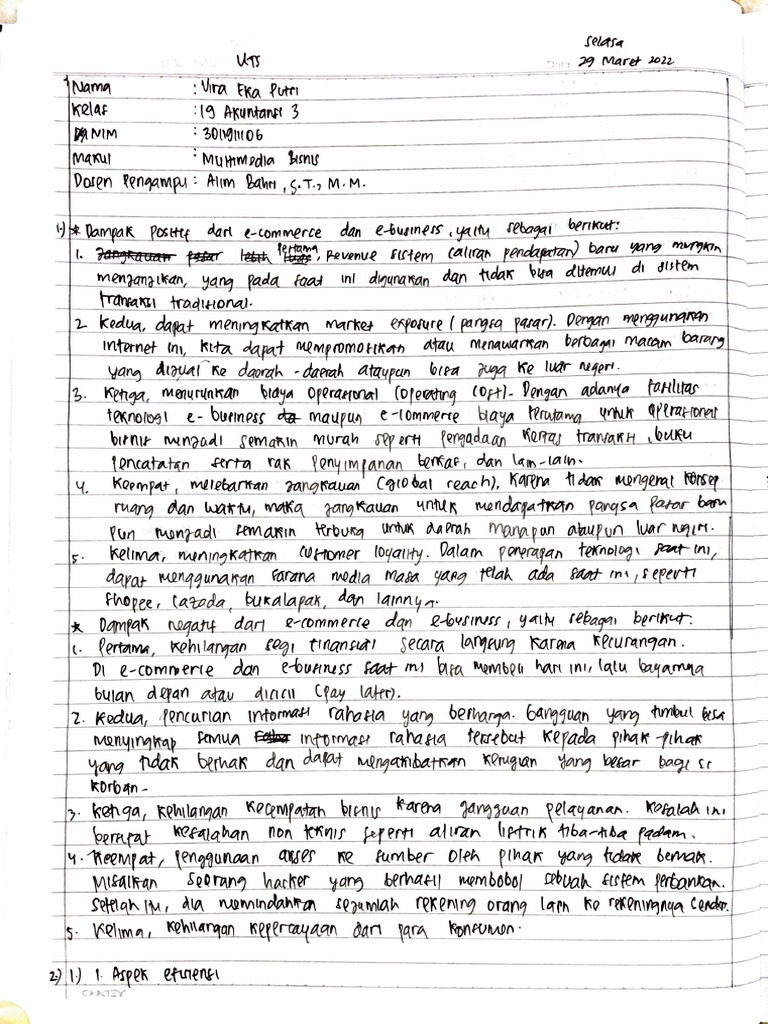 Selasa
UTS 29 Maret 2022
Nama : Vira Eka Putri
Kelas : 19 Akuntansi 3
NIM : 301191106
Makul : Multimedia Bisnis
Dosen Pengampu : Alim Bahri, S.T., M.M.
1.) * Dampak positif dari e-commerce dan e-business, yaitu sebagai berikut:
1. Pertama, Revenue sistem (aliran pendapatan) baru yang mungkin
menjanjikan, yang pada saat ini digunakan dan tidak bisa ditemui di sistem
transaksi tradisional.
2 Kedua, dapat meningkatkan market exposure (pangsa pasar). Dengan menggunakan
internet ini, kita dapat mempromosikan atau menawarkan berbagai macam barang
yang dijual ke daerah-daerah ataupun bisa juga ke luar negeri.
3. Ketiga, menurunkan biaya operasional (operating cost). Dengan adanya fasilitas
teknologi e-business maupun e-commerce biaya terutama untuk operasional
bisnis menjadi semakin murah seperti pengadaan kertas transaksi, buku
pencatatan serta rak penyimpanan berkas, dan lain-lain.
4. Keempat, melebarkan jangkauan (global reach). Karena tidak mengenal konsep
ruang dan waktu, maka jangkauan untuk mendapatkan pangsa pasar baru
pun menjadi semakin terbuka untuk daerah manapun ataupun luar negri.
5. Kelima, meningkatkan customer loyality. Dalam penerapan teknologi saat ini,
dapat menggunakan sarana media masa yang telah ada saat ini, seperti
Shopee, Lazada, bukalapak, dan lainnya.
* Dampak negatif dari e-commerce dan e-business, yaitu sebagai berikut:
1. Pertama, kehilangan segi finansial secara langsung karena kecurangan.
Di e-commerce dan e-business saat ini bisa membeli hari ini, lalu bayarnya
bulan depan atau dicicil (pay later).
2. Kedua, pencurian informasi rahasia yang berharga. Gangguan yang timbul bisa
menyingkap semua informasi rahasia tersebut kepada pihak-pihak
yang tidak berhak dan dapat mengakibatkan kerugian yang besar bagi si
korban-
3. Ketiga, kehilangan kecempatan bisnis karena gangguan pelayanan. Kesalah ini
bersifat kesalahan non teknis seperti aliran listrik tiba-tiba padam.
4. Keempat, penggunaan akses ke sumber oleh pihak yang tidak berhak.
Misalkan seorang hacker yang berhasil membobol sebuah sistem perbankan.
Setelah itu, dia memindahkan sejumlah rekening orang lain ke rekeningnya sendiri.
5. Kelima, kehilangan kepercayaan dari para konsumen.
2.) 1.) 1. Aspek efisiensi